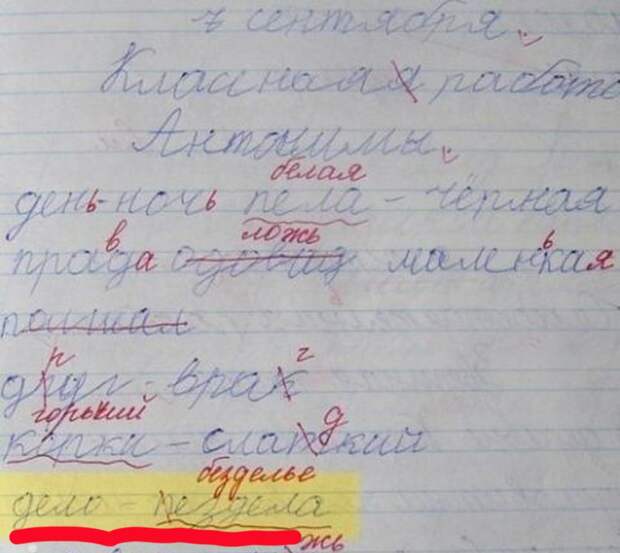 7 сентября.
Классная работа
Антонимы.
белая
день-ночь пела - чёрная
ложь
правда маленькая
р г
друг - враг
горький д
корки - слапкий
безделье
дело - пездела
жь